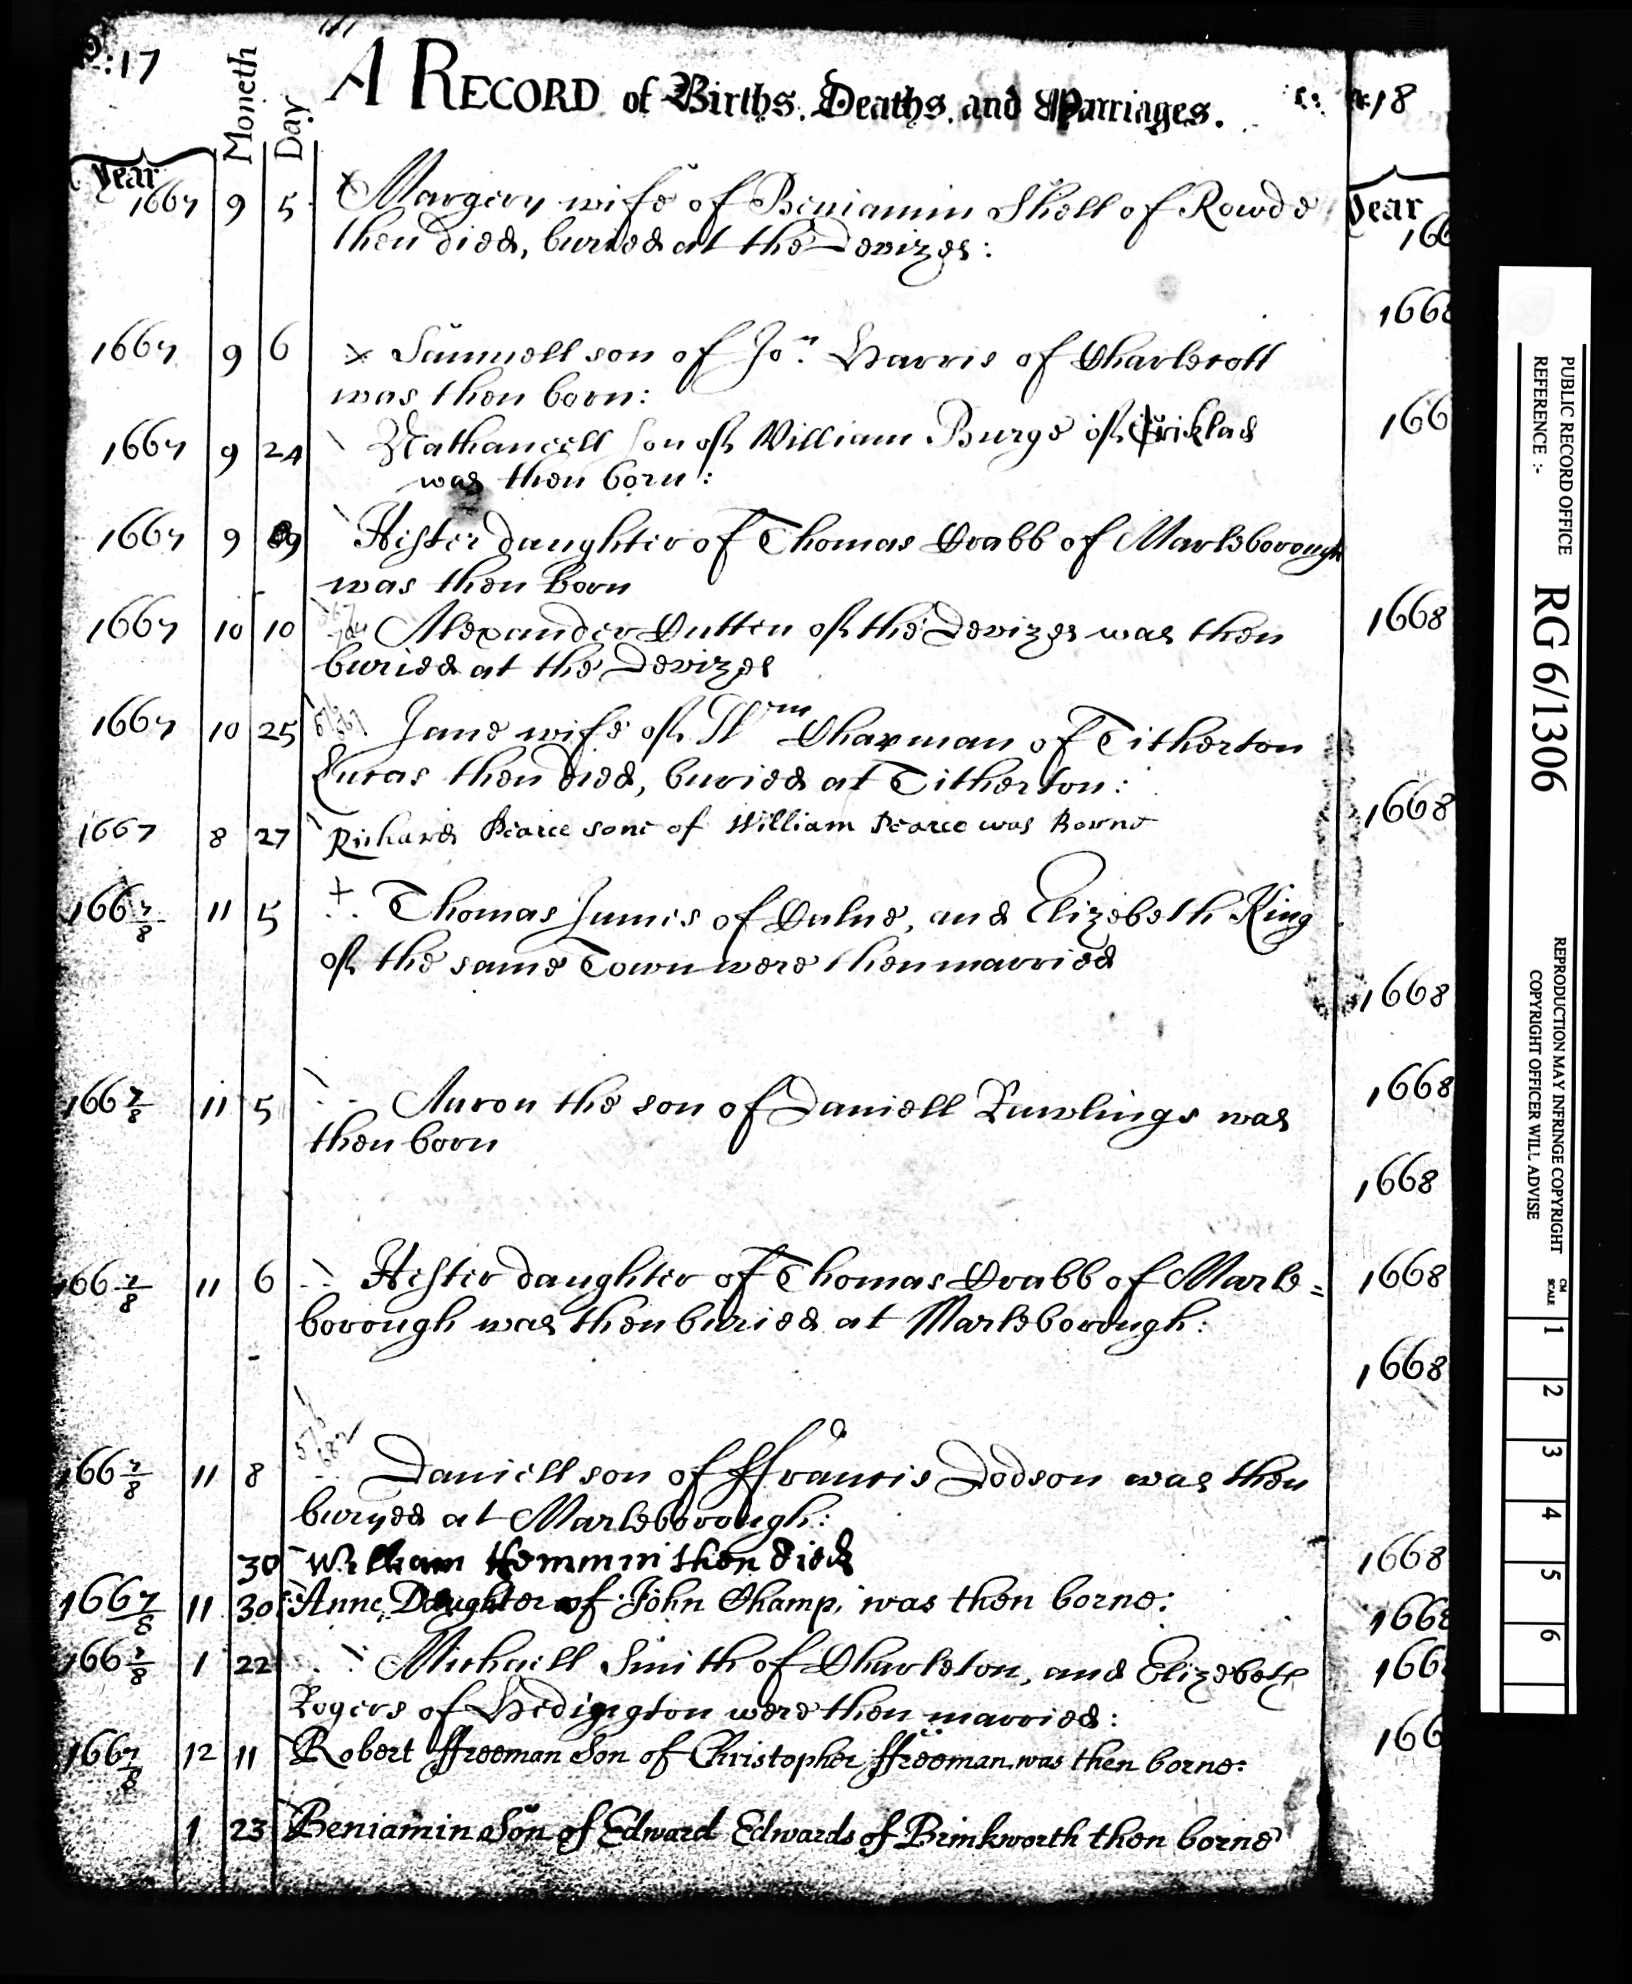 :17
A RECORD of Births, Deaths, and Marriages.
:18
Year
Moneth
Day
1667 9 5 Margery wife of Beniamin Shell of Rowde
then died, buried at the Devizes:
1667 9 6 Samuell son of Jon. Harris of Charlcott
was then born:
1667 9 24 Nathaneell son of William Burge of Criklad
was then born:
1667 9 29 Hester daughter of Thomas Crabb of Marleborough
was then born
1667 10 10 Alexander Cutten of the Devizes was then
buried at the Devizes
1667 10 25 Jane wife of Wm Chapman of Titherton
Lucas then died, buried at Titherton:
1667 8 27 Richard Pearce sone of William Pearce was Borne
1667/8 11 5 Thomas James of Calne, and Elizebeth King
of the same Town were then married
1667/8 11 5 Aaron the son of Daniell Rawlings was
then born
1667/8 11 6 Hester daughter of Thomas Crabb of Marle=
borough was then buried at Marleborough:
1667/8 11 8 Daniell son of ffrancis Dodson was then
buryed at Marleborough:
30 William then died
1667/8 11 30 Anne Daughter of John Champ, was then borne:
1667/8 1 22 Michaell Smith of Charleton, and Elizebeth
Rogers of Hedington were then married:
1667/8 12 11 Robert ffreeman Son of Christopher ffreeman was then borne:
1 23 Beniamin Son of Edward Edwards of Brinkworth then borne
Year
166
1668
166
1668
1668
1668
1668
1668
1668
1668
1668
1668
166
166
PUBLIC RECORD OFFICE
REFERENCE :-
RG 6/1306
REPRODUCTION MAY INFRINGE COPYRIGHT
COPYRIGHT OFFICER WILL ADVISE
CM
SCALE
1
2
3
4
5
6